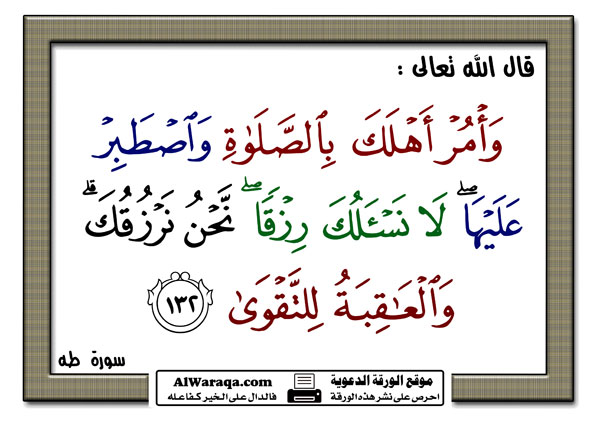 قال الله تعالى :
وَأْمُرْ أَهْلَكَ بِٱلصَّلَوٰةِ وَٱصْطَبِرْ
عَلَيْهَا ۖ لَا نَسْـَٔلُكَ رِزْقًا ۖ نَّحْنُ نَرْزُقُكَ ۗ
وَٱلْعَـٰقِبَةُ لِلتَّقْوَىٰ ١٣٢
سورة طه
موقع الورقة الدعوية
احرص على نشر هذه الورقة
AlWaraqa.com
فالدال على الخير كفاعله